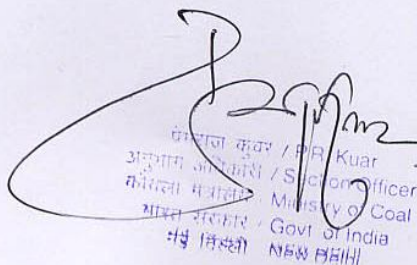 कुवर / P.R. Kuar
अनुभाग अधिकारी / Section Officer
कोयला मंत्रालय / Ministry of Coal
भारत सरकार / Govt of India
नई दिल्ली NEW DELHI